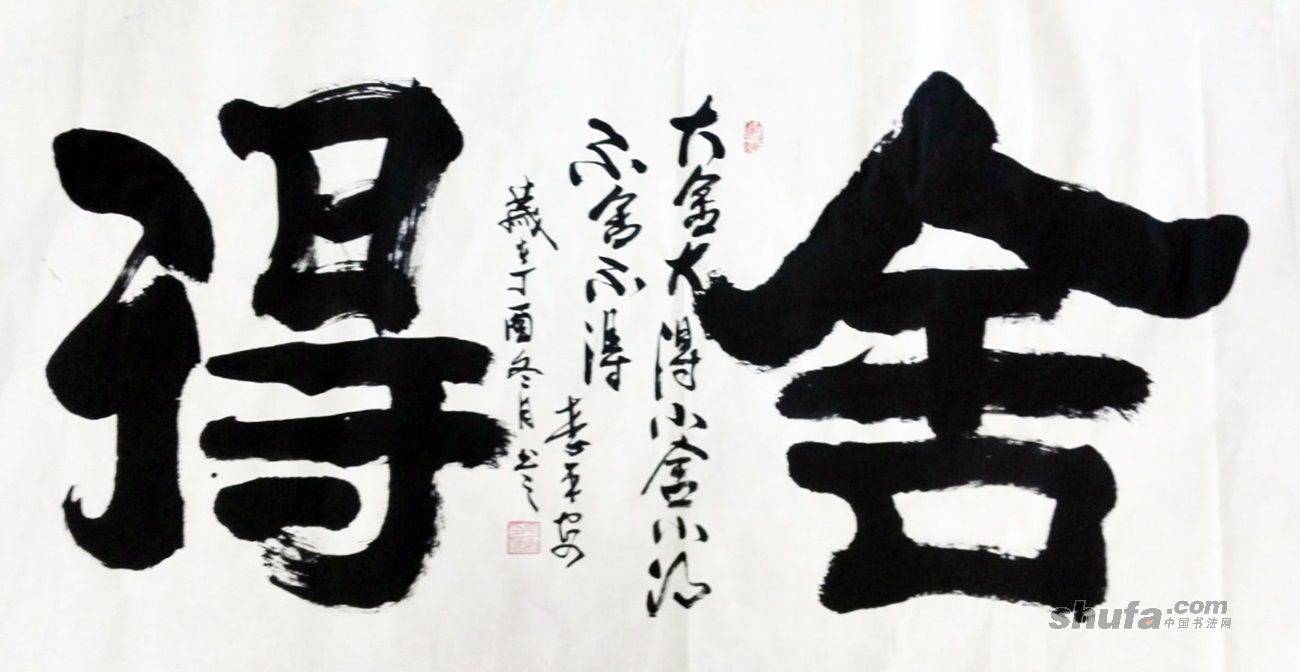 舍
大舍大得小舍小得
不舍不得
李平安
歲在丁酉冬月書之
得
shufa.com
中国书法网